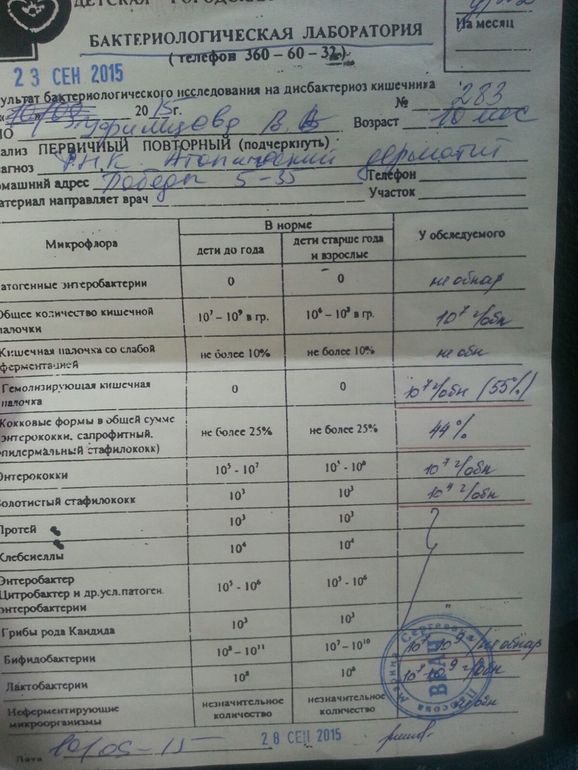 ДЕТСКАЯ ГОРОДС
БАКТЕРИОЛОГИЧЕСКАЯ ЛАБОРАТОРИЯ
( телефон 360 – 60 – 32 )
На месяц
23 СЕН 2015
зультат бактериологического исследования на дисбактериоз кишечника
2015г. № 283
ИО В. Возраст 10 мес
ализ ПЕРВИЧНЫЙ ПОВТОРНЫЙ (подчеркнуть)
агноз Атопический дерматит
омашний адрес Победы 5-35 Телефон
атериал направляет врач Участок
Микрофлора В норме У обследуемого
дети до года дети старше года и взрослые
атогенные энтеробактерии 0 0 не обнар
Общее количество кишечной палочки 10⁷ – 10⁹ в гр. 10⁶ – 10⁸ в гр. 10⁷
Кишечная палочка со слабой ферментацией не более 10% не более 10% не обн
Гемолизирующая кишечная палочка 0 0 10⁷ (55%)
Кокковые формы в общей сумме (энтерококки, сапрофитный, эпидермальный стафилококк) не более 25% не более 25% 44%
Энтерококки 10⁵ - 10⁷ 10⁵ - 10⁸ 10⁷
Золотистый стафилококк 10³ 10³ 10⁴
Протей 10³ 10³
Клебсиеллы 10⁴ 10⁴
Энтеробактер Цитробактер и др.усл.патоген. энтеробактерии 10⁵ - 10⁶ 10⁵ - 10⁶
Грибы рода Кандида 10³ 10³
Бифидобактерии 10⁸ – 10¹¹ 10⁷ – 10¹⁰ не обнар
Лактобактерии 10⁸ 10⁸
Неферментирующие микроорганизмы незначительное количество незначительное количество не обн
Марина Сергеевна
ВРАЧ
Дата
28 СЕН 2015